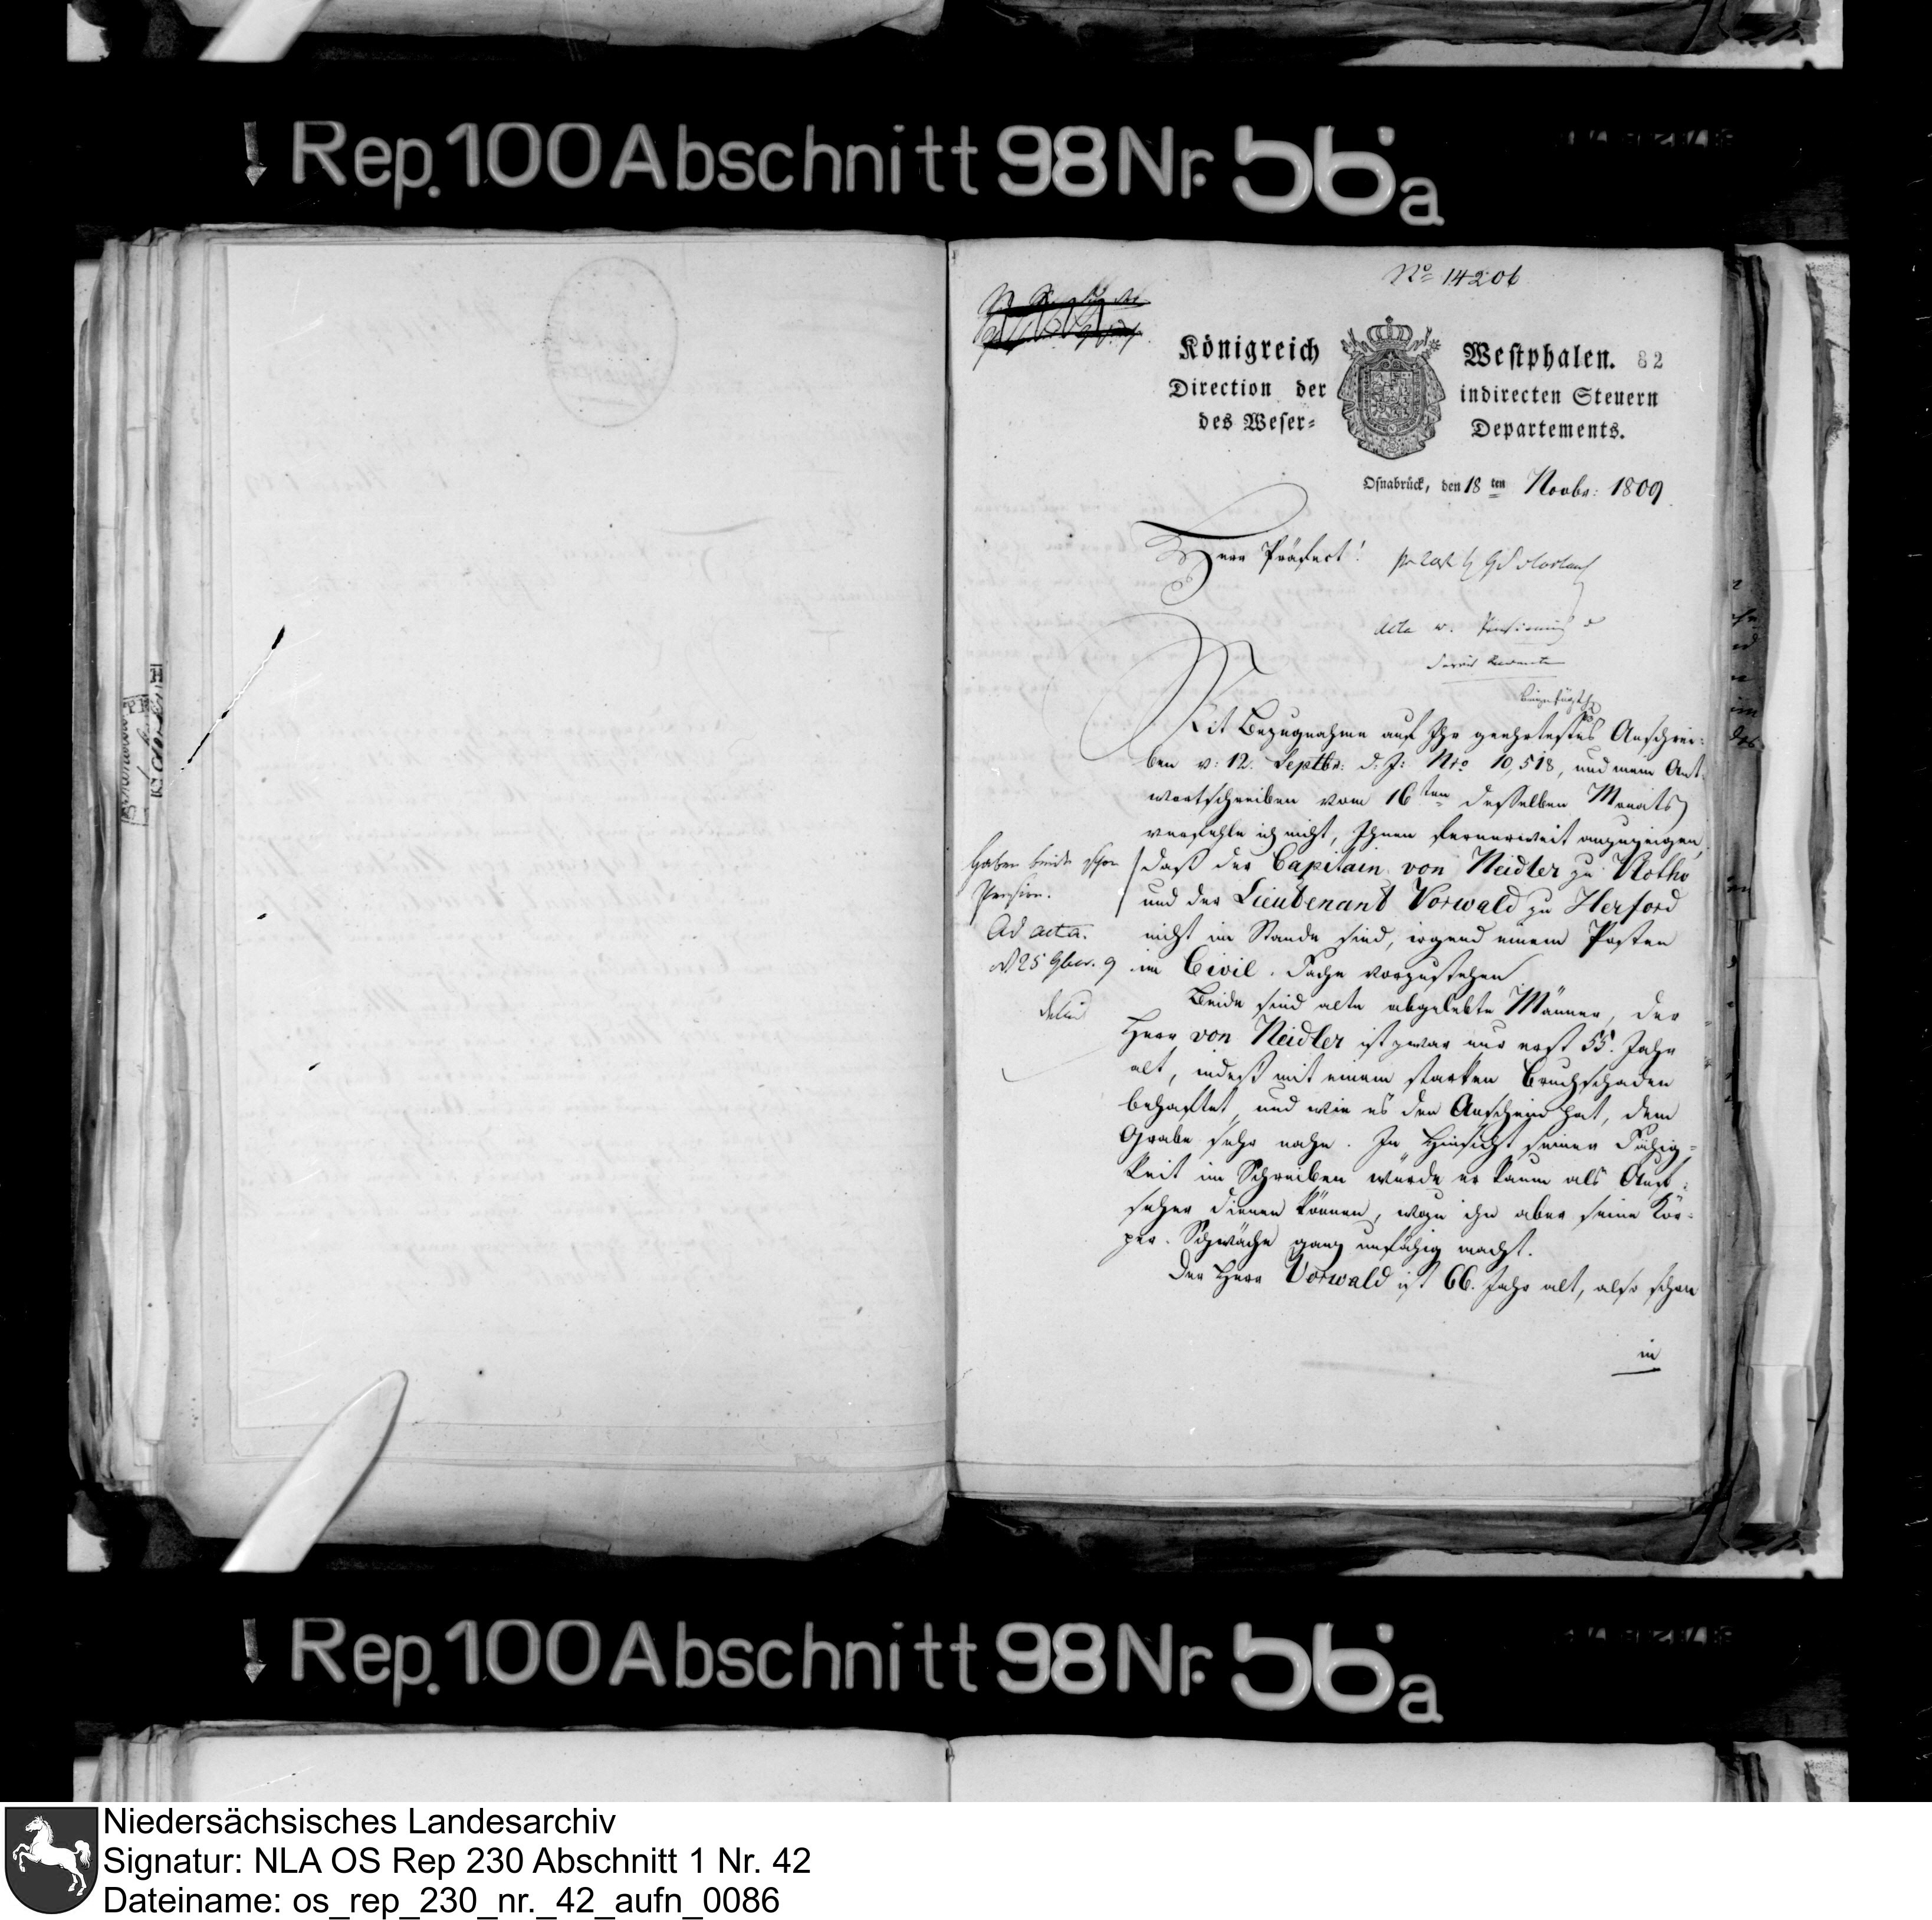 Rep. 100 Abschnitt 98 Nr. 56a
No 14206
Königreich Westphalen. 82
Direction der indirecten Steuern
des Weser- Departements.
Osnabrück, den 18 ten Novbr: 1809
Herr Präfect!
Mit Bezugnahme auf Ihr geehrtestes Anschrei-
ben v: 12. Septbr: d: J: Nro 10,518, und mein Ant-
wortschreiben vom 16ten desselben Monats
verfehle ich nicht, Ihnen fernerweit anzuzeigen,
daß der Capitain von Neidler zu Vlotho
und der Lieutenant Vorwald zu Herford
nicht im Stande sind, irgend einem Posten
im Civil-Fache vorzustehen
Haben beide schon
Pension.
Ad acta.
25 9br. 9
Beide sind alte abgelebte Männer, der
Herr von Neidler ist zwar nur erst 55. Jahr
alt, indeß mit einem starken Bruchschaden
behaftet, und wie es den Anschein hat, dem
Grabe sehr nahe. In Hinsicht seiner Fähig-
keit im Schreiben würde er kaum als Auf-
seher dienen können, wozu ihn aber seine Kör-
per-Schwäche ganz unfähig macht.
Der Herr Vorwald ist 66. Jahr alt, also schon
in
Rep. 100 Abschnitt 98 Nr. 56a
Niedersächsisches Landesarchiv
Signatur: NLA OS Rep 230 Abschnitt 1 Nr. 42
Dateiname: os_rep_230_nr._42_aufn_0086